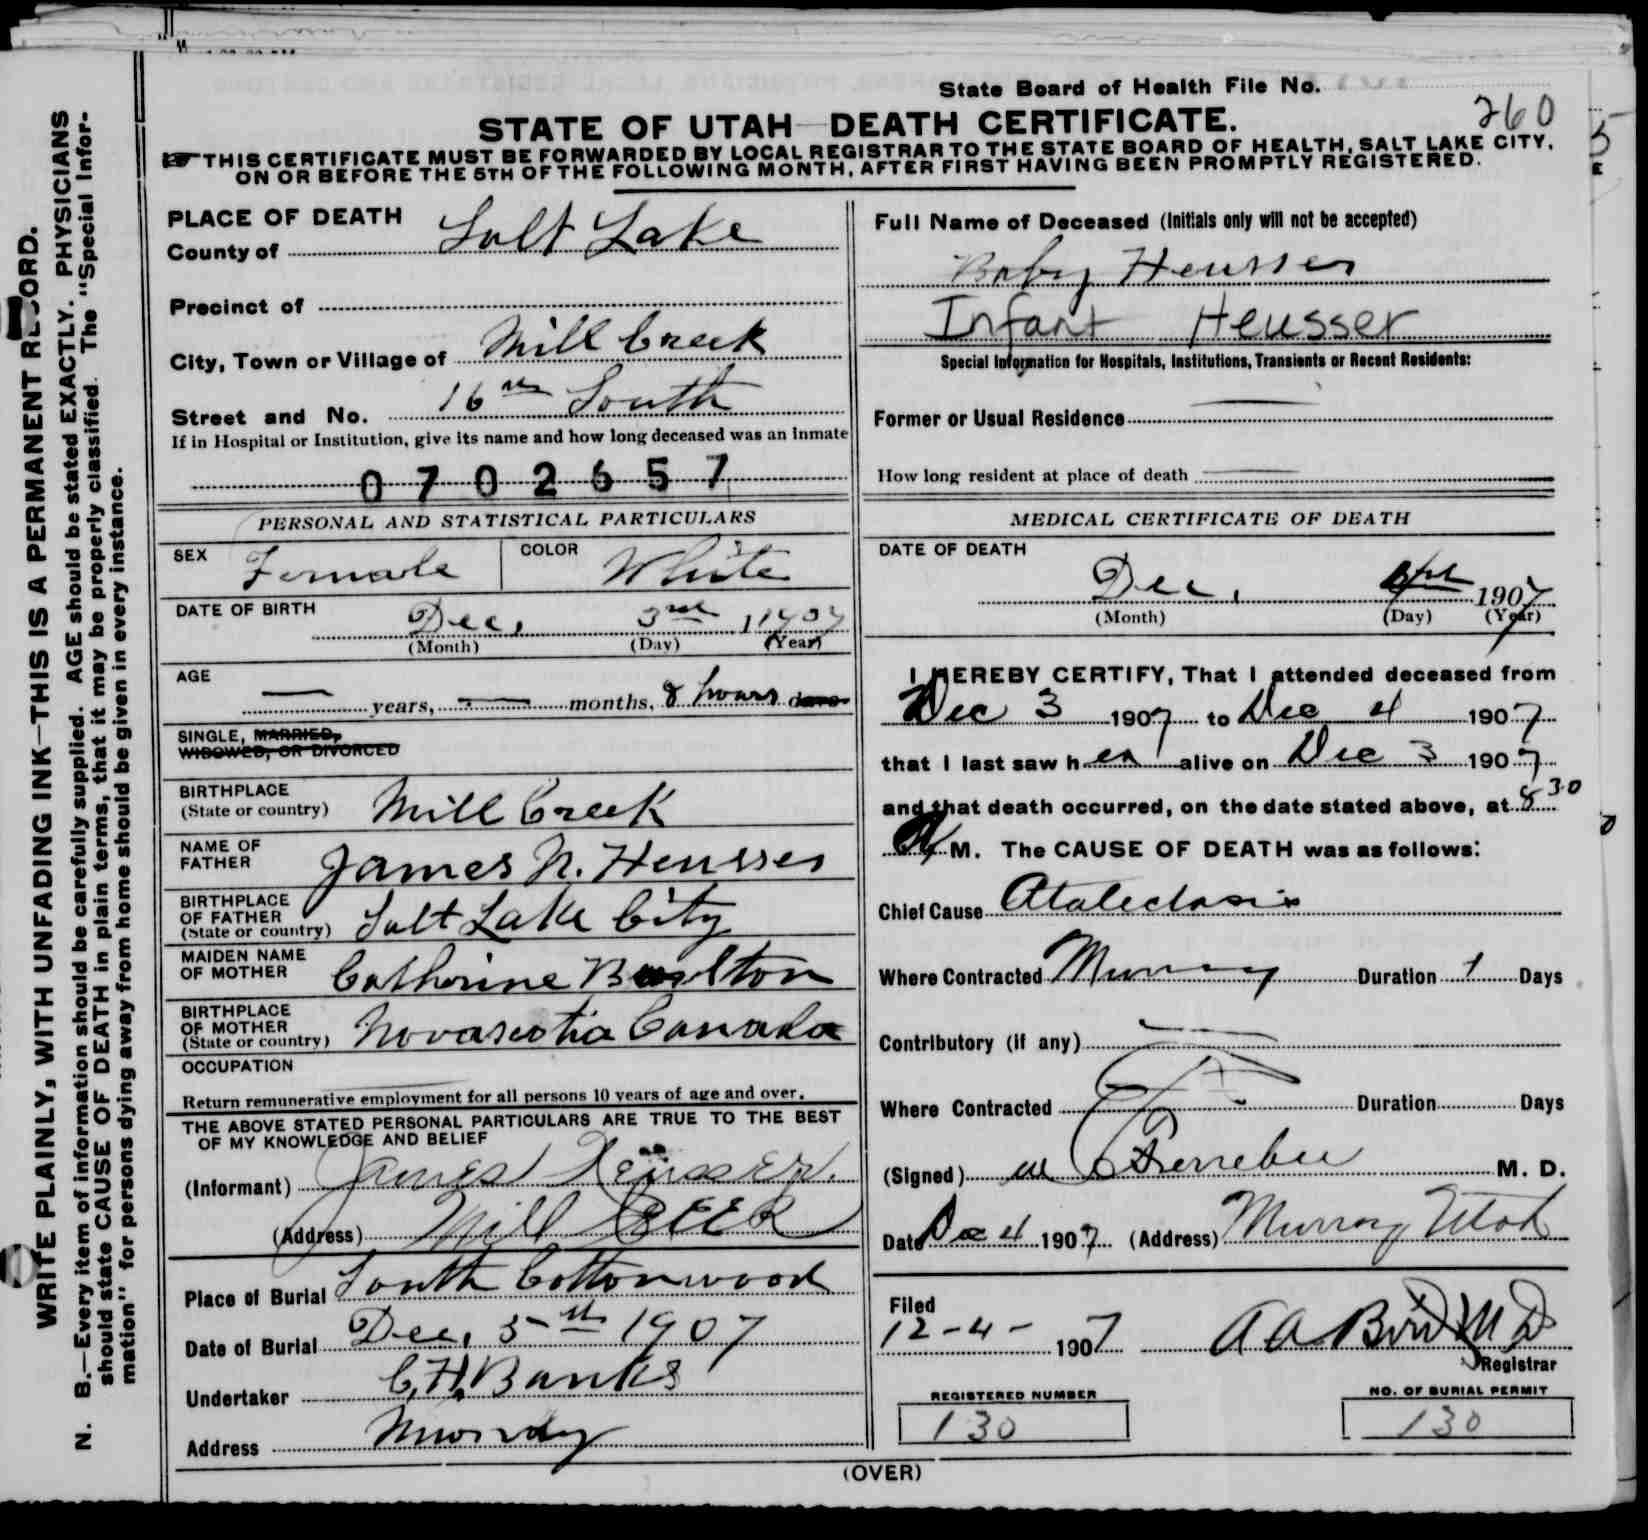 State Board of Health File No.
260
STATE OF UTAH—DEATH CERTIFICATE.
☞THIS CERTIFICATE MUST BE FORWARDED BY LOCAL REGISTRAR TO THE STATE BOARD OF HEALTH, SALT LAKE CITY,
ON OR BEFORE THE 5TH OF THE FOLLOWING MONTH, AFTER FIRST HAVING BEEN PROMPTLY REGISTERED.
WRITE PLAINLY, WITH UNFADING INK—THIS IS A PERMANENT RECORD.
N. B.—Every item of information should be carefully supplied. AGE should be stated EXACTLY. PHYSICIANS
should state CAUSE OF DEATH in plain terms, that it may be properly classified. The "Special Infor-
mation" for persons dying away from home should be given in every instance.
PLACE OF DEATH
County of Salt Lake
Precinct of
City, Town or Village of Mill Creek
Street and No. 16th South
If in Hospital or Institution, give its name and how long deceased was an inmate
0702657
PERSONAL AND STATISTICAL PARTICULARS
SEX Female COLOR White
DATE OF BIRTH Dec, 3rd 1907
(Month) (Day) (Year)
AGE
— years, — months, 8 hours days
SINGLE, MARRIED,
WIDOWED, OR DIVORCED
BIRTHPLACE
(State or country) Mill Creek
NAME OF
FATHER James N. Heusser
BIRTHPLACE
OF FATHER
(State or country) Salt Lake City
MAIDEN NAME
OF MOTHER Catherine
BIRTHPLACE
OF MOTHER
(State or country) Novascotia Canada
OCCUPATION
Return remunerative employment for all persons 10 years of age and over.
THE ABOVE STATED PERSONAL PARTICULARS ARE TRUE TO THE BEST
OF MY KNOWLEDGE AND BELIEF
(Informant) James Heusser.
(Address) Mill Creek
Place of Burial South Cottonwood
Date of Burial Dec, 5th 1907
Undertaker C. H. Banks
Address Murray
Full Name of Deceased (Initials only will not be accepted)
Baby Heusser
Infant Heusser
Special Information for Hospitals, Institutions, Transients or Recent Residents:
Former or Usual Residence —
How long resident at place of death —
MEDICAL CERTIFICATE OF DEATH
DATE OF DEATH
Dec, 4th 1907
(Month) (Day) (Year)
I HEREBY CERTIFY, That I attended deceased from
Dec 3 1907 to Dec 4 1907
that I last saw her alive on Dec 3 1907
and that death occurred, on the date stated above, at 8 30
A M. The CAUSE OF DEATH was as follows:
Chief Cause Atalectasis
Where Contracted Murray Duration 1 Days
Contributory (if any) —
Where Contracted Duration Days
(Signed) M. D.
Date Dec 4 1907 (Address) Murray Utah
Filed
12-4- 1907 A A Bird M D
Registrar
REGISTERED NUMBER
130
NO. OF BURIAL PERMIT
130
(OVER)